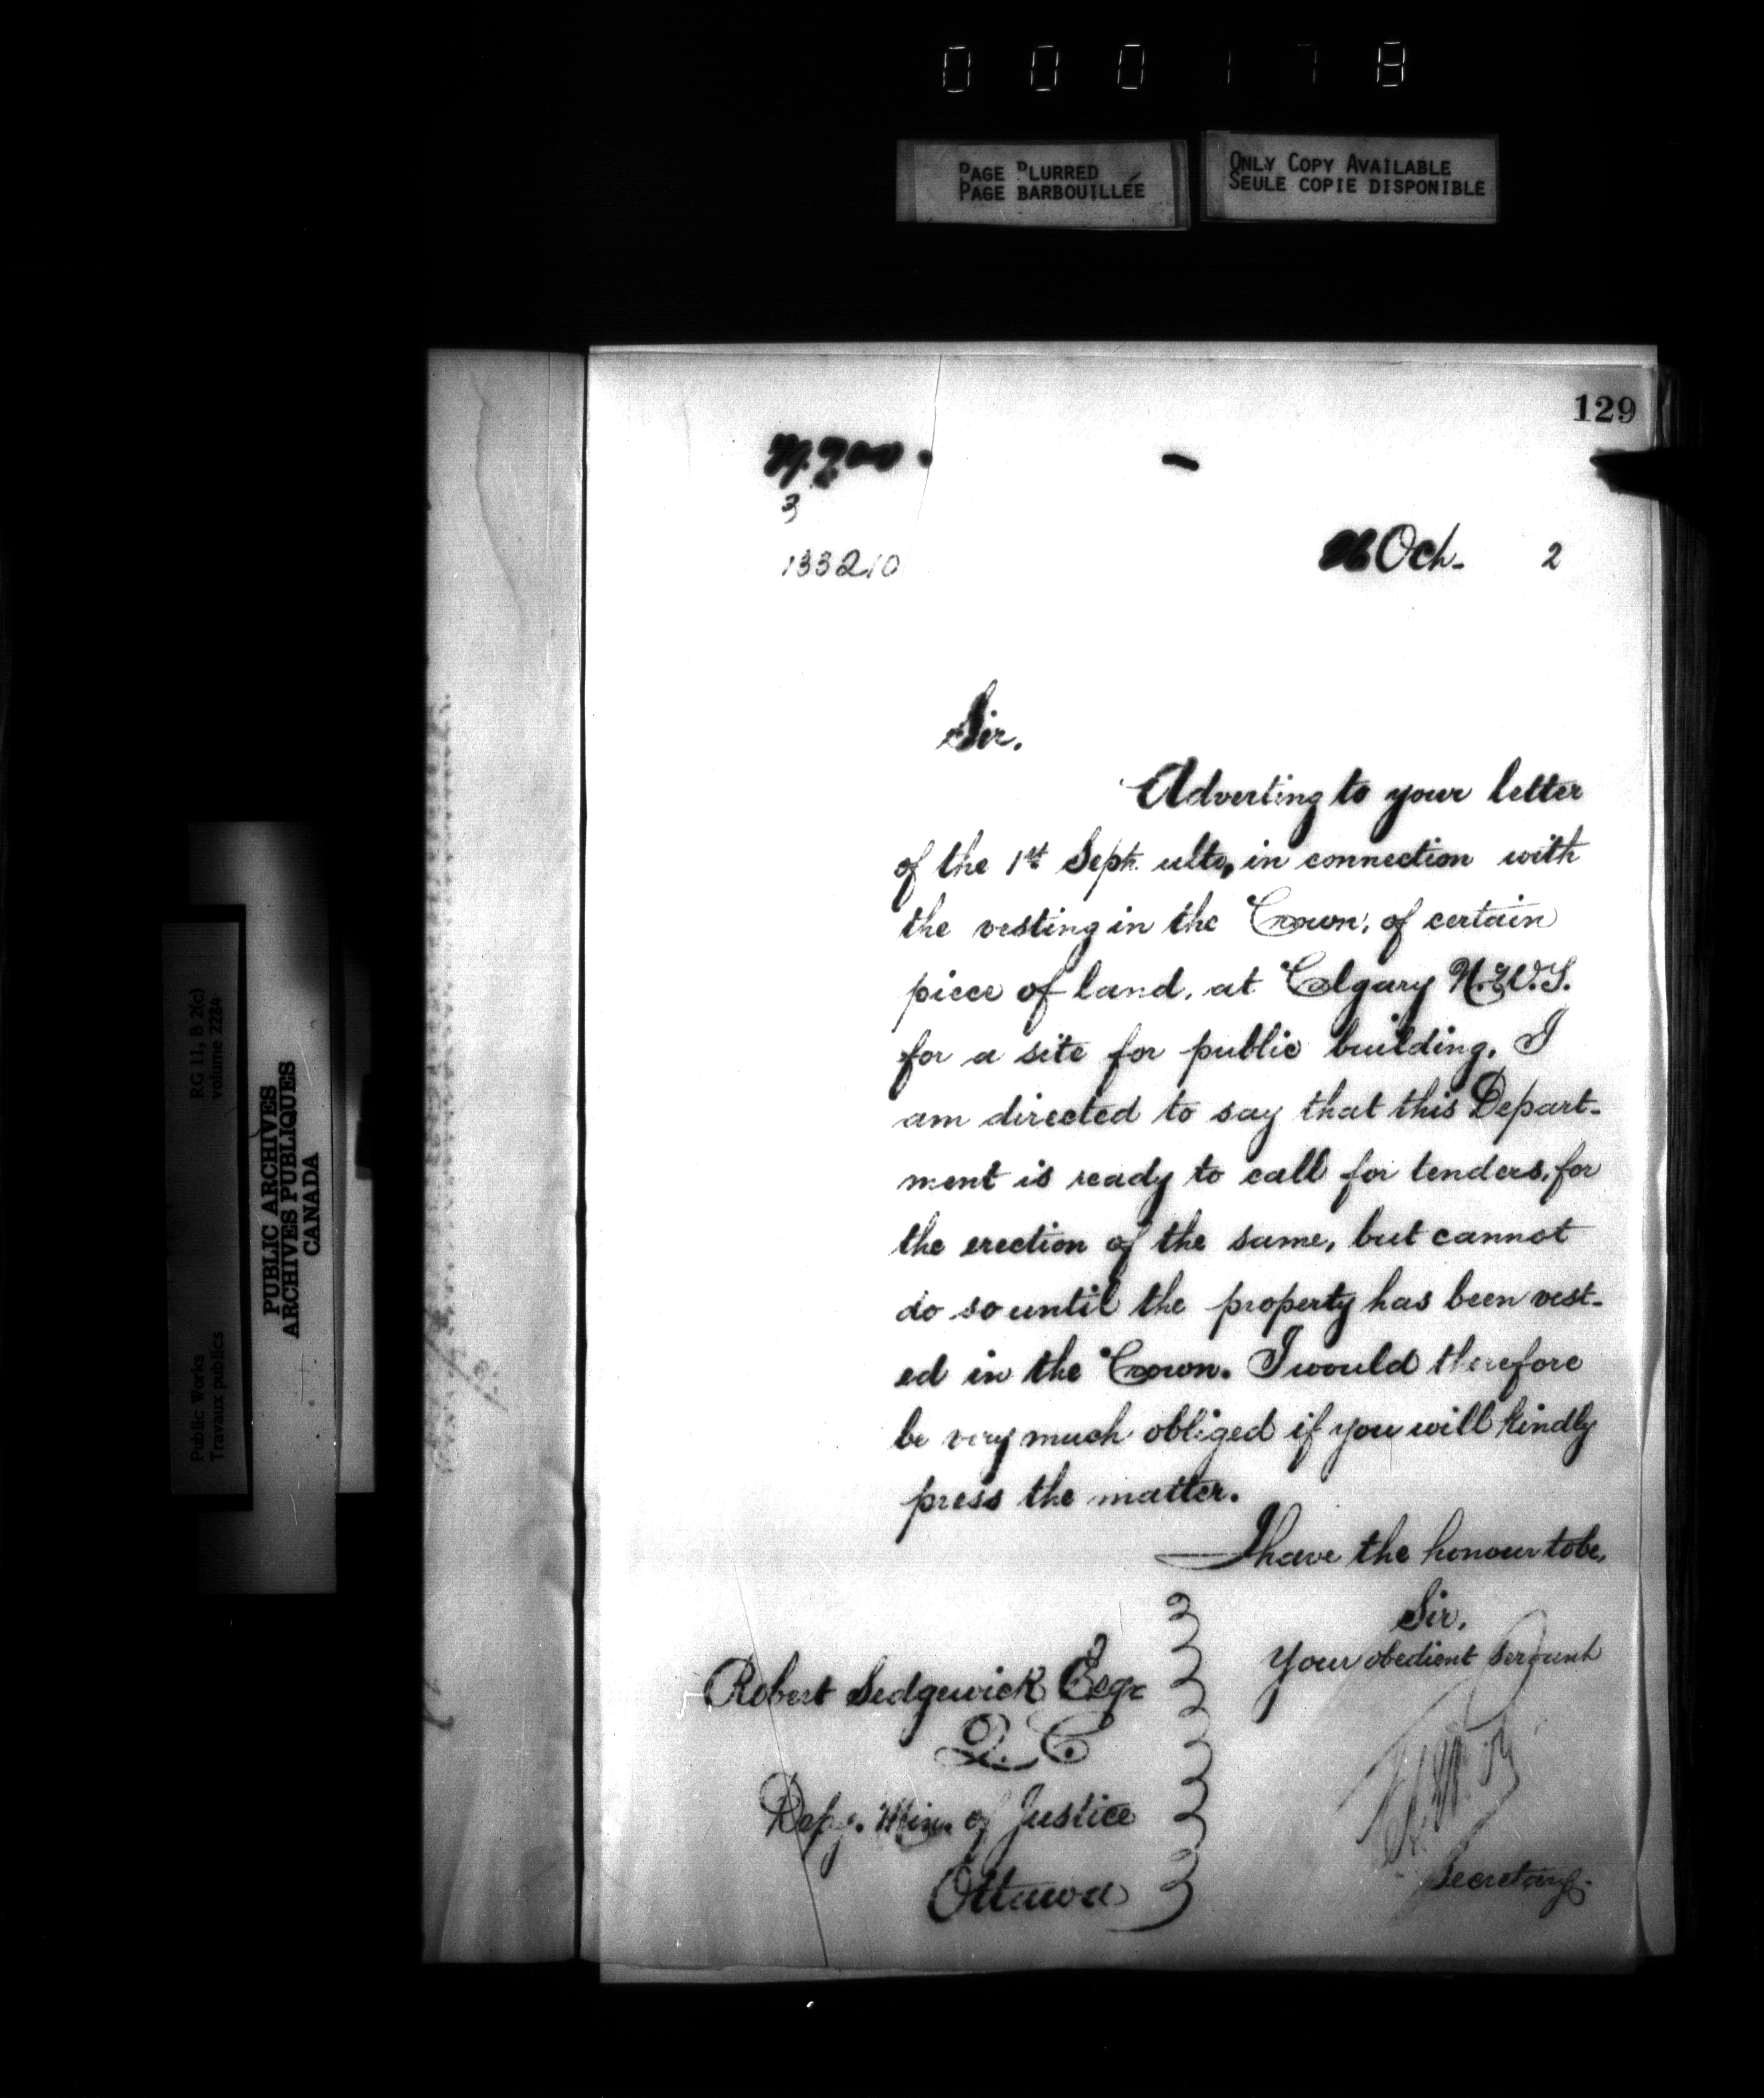 000178
PAGE BLURRED
PAGE BARBOUILLÉE
ONLY COPY AVAILABLE
SEULE COPIE DISPONIBLE
129
3
133210
Oct. 2
Sir,
Adverting to your letter
of the 1st Sept. ulto, in connection with
the vesting in the Crown, of certain
piece of land, at Calgary N.W.T.
for a site for public building, I
am directed to say that this Depart-
ment is ready to call for tenders, for
the erection of the same, but cannot
do so until the property has been vest-
ed in the Crown. I would therefore
be very much obliged if you will kindly
press the matter.
I have the honour to be,
Sir,
Your obedient servant
Secretary.
Robert Sedgewick Esqr
Q.C
Depy. Min. of Justice
Ottawa
RG 11, B 2(c)
volume 2284
Public Works
Travaux publics
PUBLIC ARCHIVES
ARCHIVES PUBLIQUES
CANADA